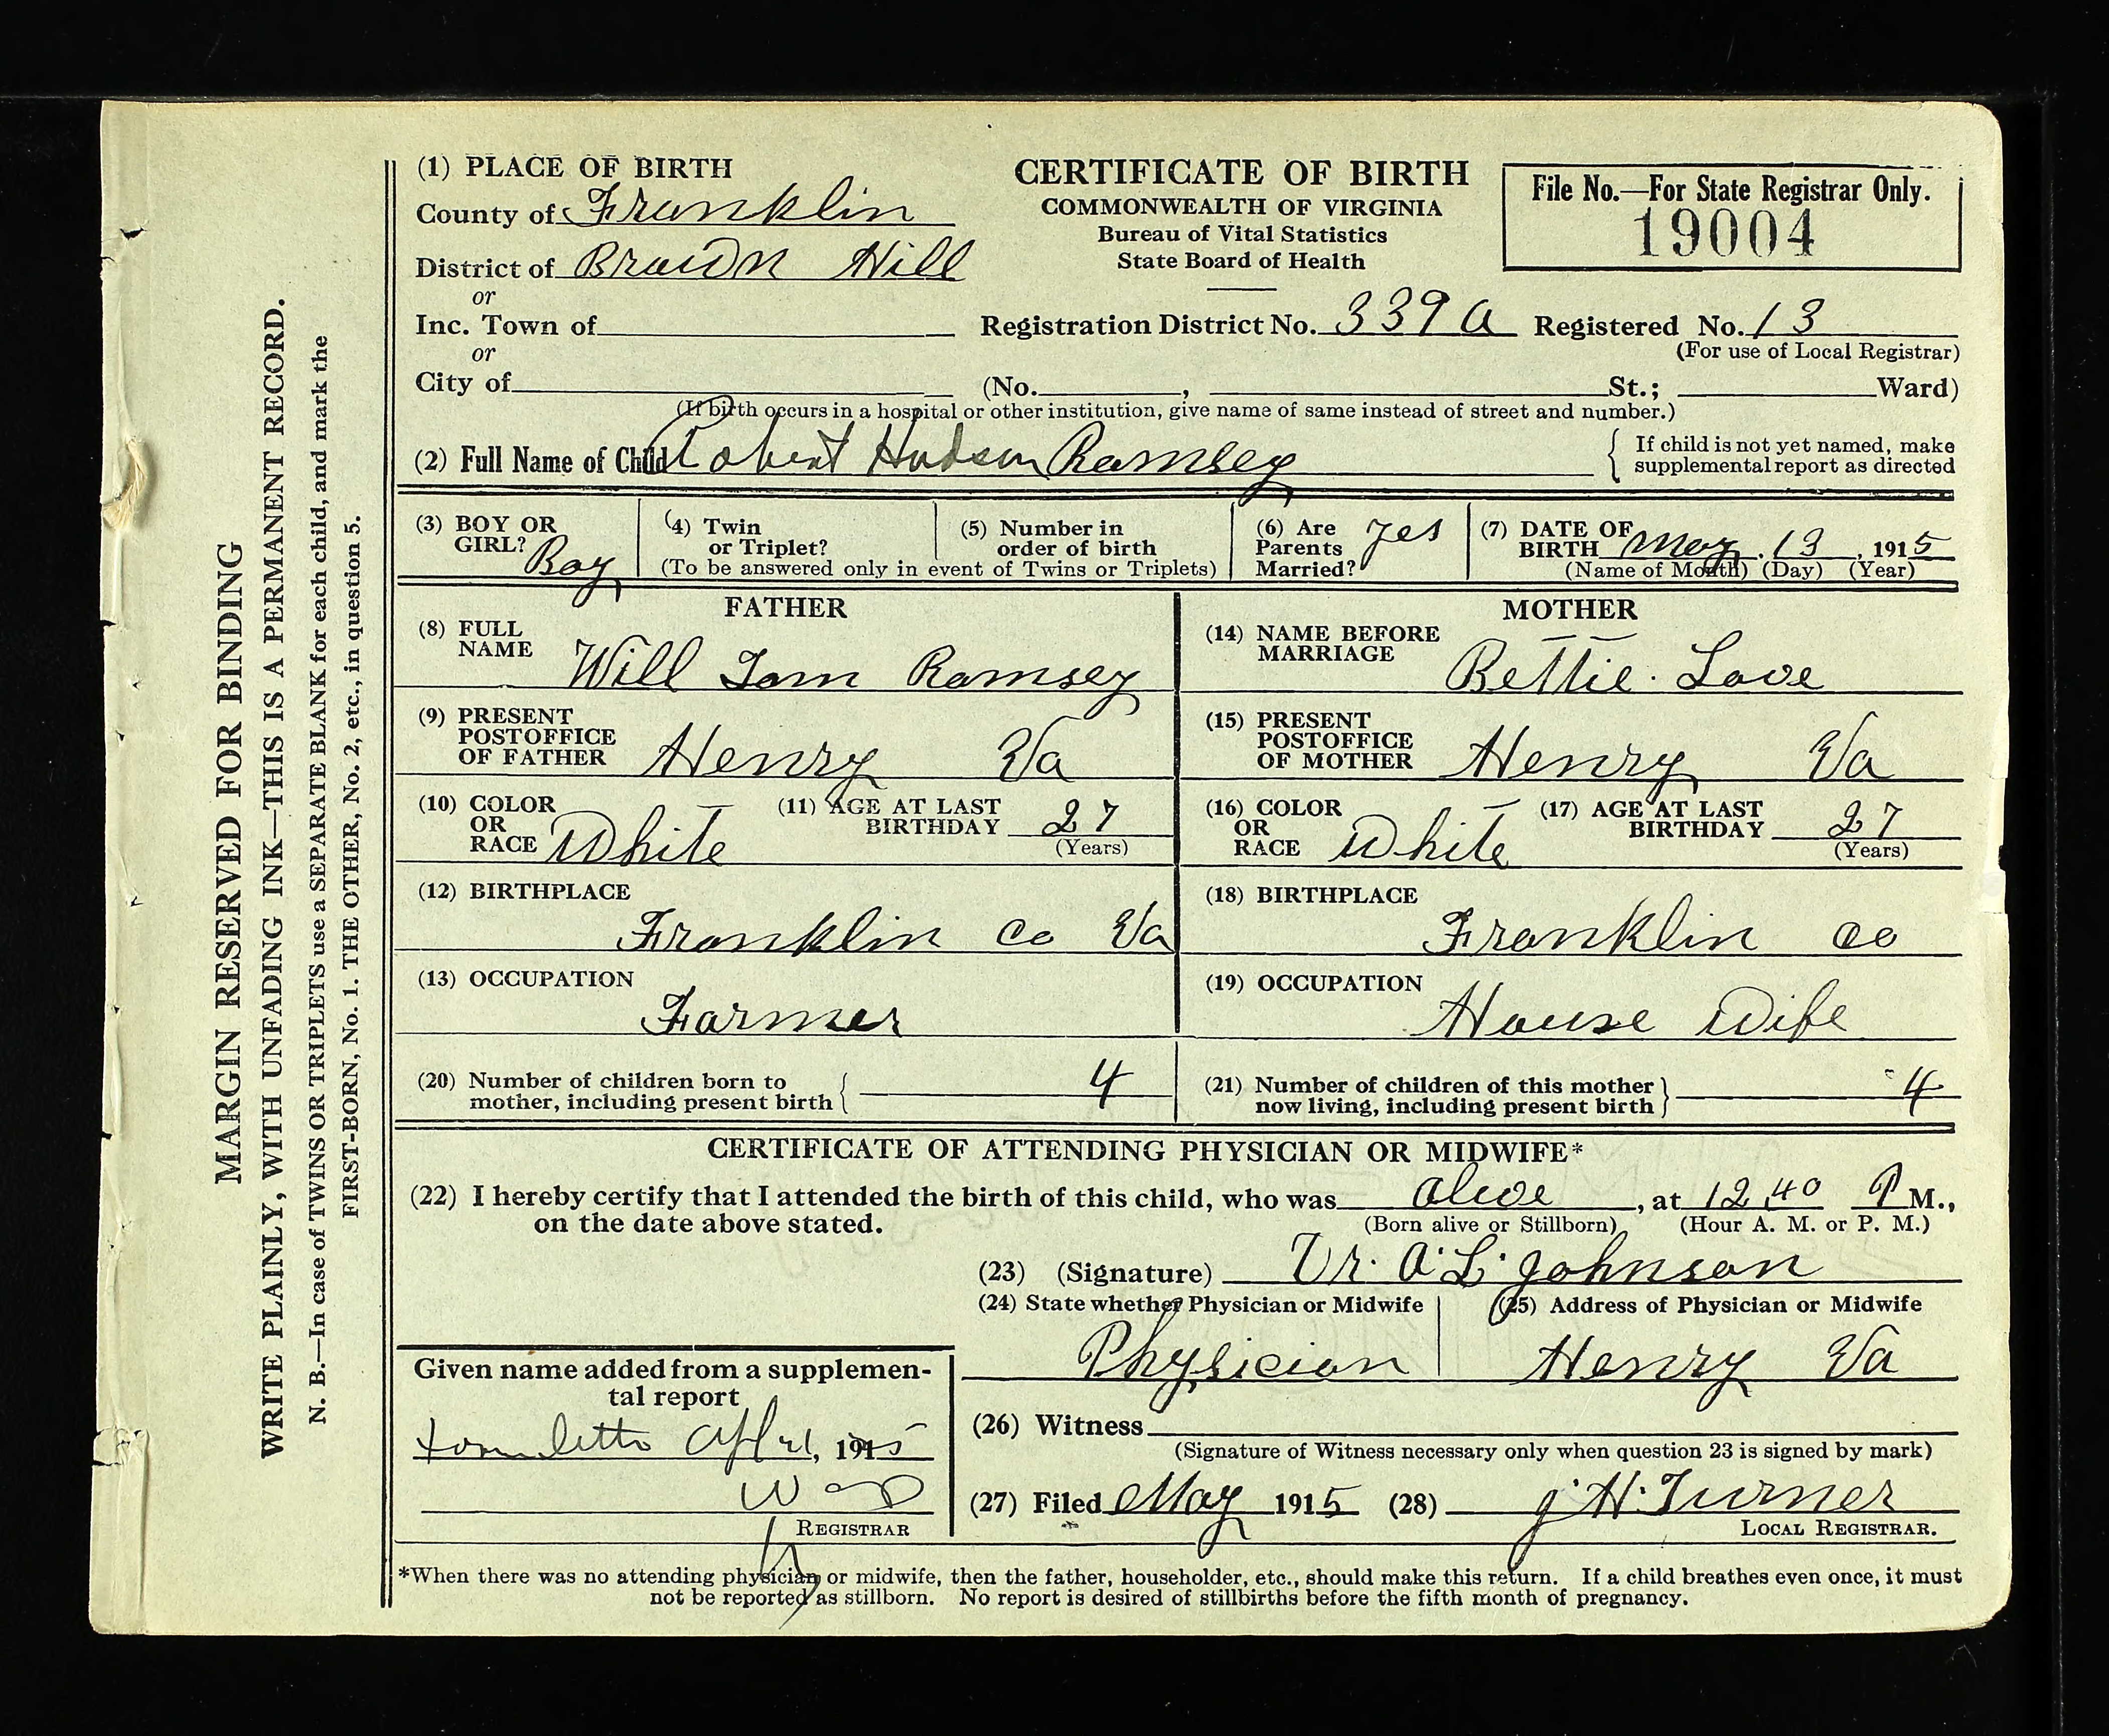 MARGIN RESERVED FOR BINDING
WRITE PLAINLY, WITH UNFADING INK—THIS IS A PERMANENT RECORD.
N. B.—In case of TWINS OR TRIPLETS use a SEPARATE BLANK for each child, and mark the
FIRST-BORN, No. 1. THE OTHER, No. 2, etc., in question 5.
(1) PLACE OF BIRTH
County of Franklin
District of Brown Hill
or
Inc. Town of
or
City of
CERTIFICATE OF BIRTH
COMMONWEALTH OF VIRGINIA
Bureau of Vital Statistics
State Board of Health
File No.—For State Registrar Only.
19004
Registration District No. 339 A Registered No. 13
(For use of Local Registrar)
(No. , St.; Ward)
(If birth occurs in a hospital or other institution, give name of same instead of street and number.)
(2) Full Name of Child Robert Hudson Ramsey
If child is not yet named, make
supplemental report as directed
(3) BOY OR
GIRL? Boy
(4) Twin
or Triplet?
(5) Number in
order of birth
(To be answered only in event of Twins or Triplets)
(6) Are
Parents
Married? yes
(7) DATE OF
BIRTH May 13, 1915
(Name of Month) (Day) (Year)
FATHER
(8) FULL
NAME Will Tom Ramsey
(9) PRESENT
POSTOFFICE
OF FATHER Henry Va
(10) COLOR
OR
RACE White
(11) AGE AT LAST
BIRTHDAY 27
(Years)
(12) BIRTHPLACE
Franklin Co Va
(13) OCCUPATION
Farmer
MOTHER
(14) NAME BEFORE
MARRIAGE Bettie Love
(15) PRESENT
POSTOFFICE
OF MOTHER Henry Va
(16) COLOR
OR
RACE White
(17) AGE AT LAST
BIRTHDAY 27
(Years)
(18) BIRTHPLACE
Franklin co
(19) OCCUPATION
House Wife
(20) Number of children born to
mother, including present birth 4
(21) Number of children of this mother
now living, including present birth 4
CERTIFICATE OF ATTENDING PHYSICIAN OR MIDWIFE*
(22) I hereby certify that I attended the birth of this child, who was alive, at 12 40 P M.,
on the date above stated. (Born alive or Stillborn) (Hour A. M. or P. M.)
(23) (Signature) Dr. A. L. Johnson
(24) State whether Physician or Midwife
Physician
(25) Address of Physician or Midwife
Henry Va
Given name added from a supplemen-
tal report
, 191
REGISTRAR
(26) Witness
(Signature of Witness necessary only when question 23 is signed by mark)
(27) Filed May 1915 (28) J. H. Turner
LOCAL REGISTRAR.
*When there was no attending physician or midwife, then the father, householder, etc., should make this return. If a child breathes even once, it must
not be reported as stillborn. No report is desired of stillbirths before the fifth month of pregnancy.